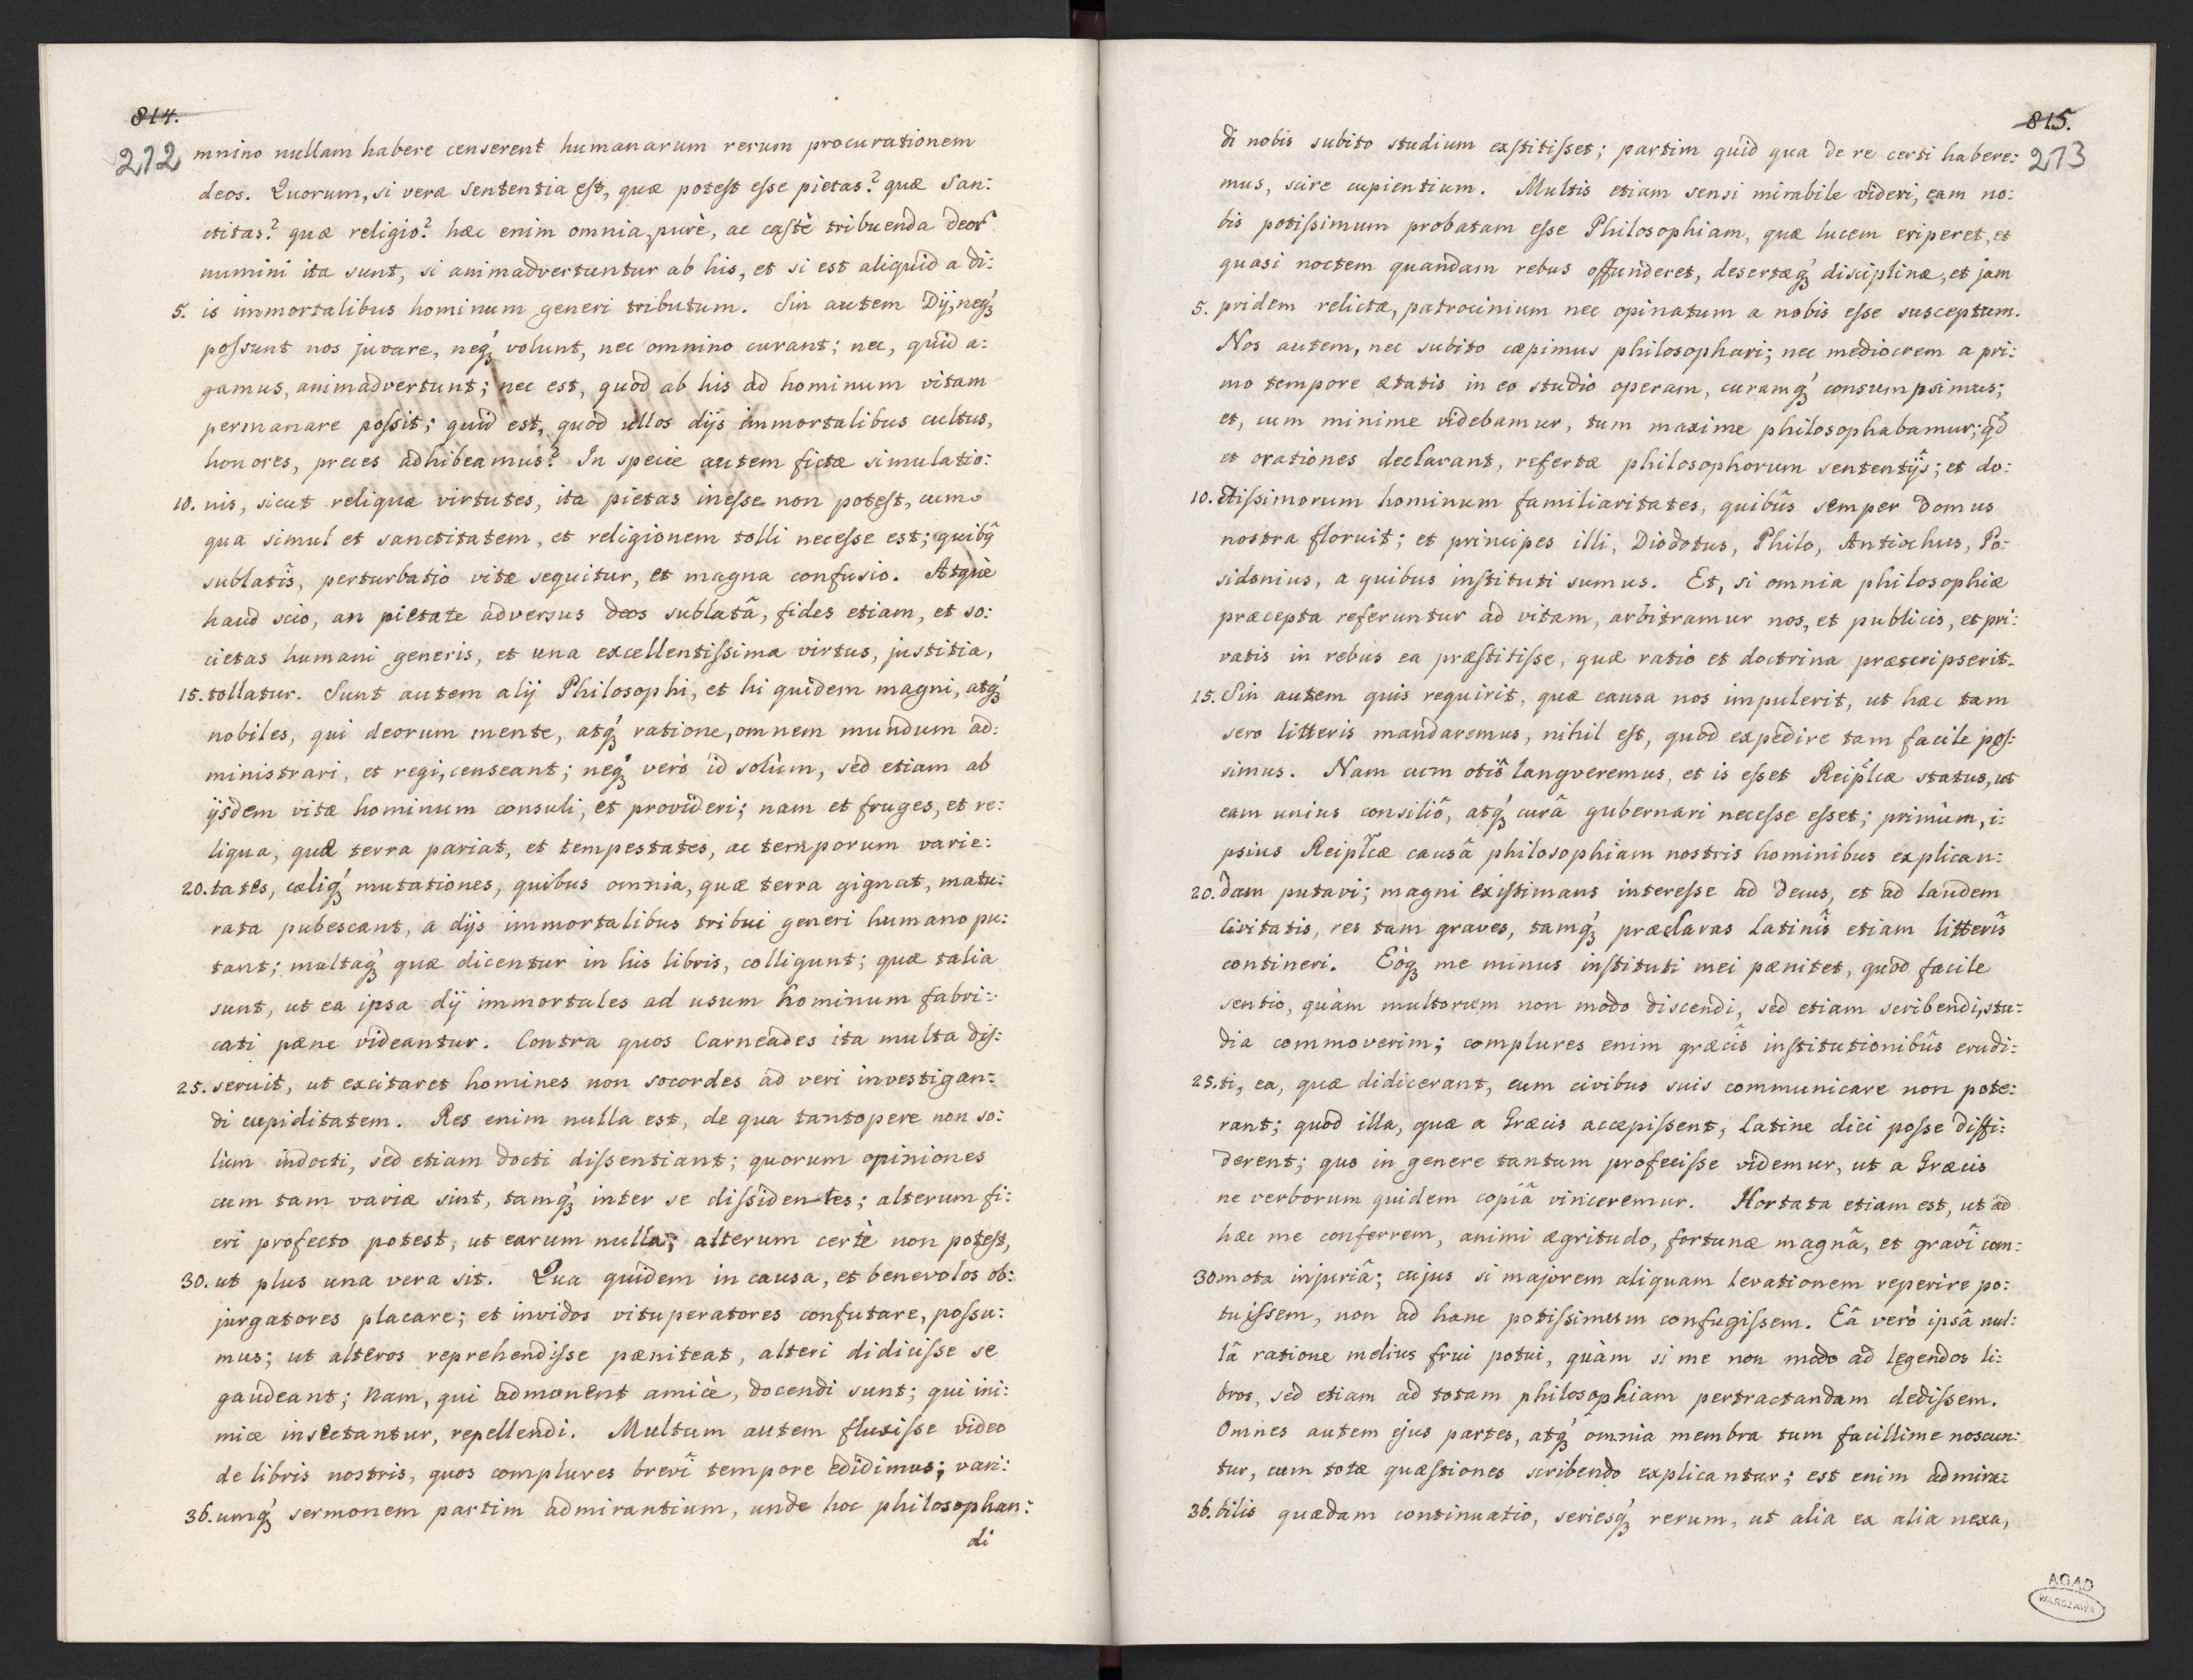 814.
212
mnino nullam habere censerent humanarum rerum procurationem
deos. Quorum, si vera sententia est, quæ potest esse pietas? quæ San:
ctitas? quæ religio? hæc enim omnia, purè, ac castè tribuenda deor̃
numini ita sunt, si animadvertuntur ab his, et si est aliquid a di:
5. is immortalibus hominum generi tributum. Sin autem Dij, neq́ꝫ
possunt nos juvare, neq́ꝫ volunt, nec omnino curant; nec, quid a:
gamus, animadvertunt; nec est, quod ab his ad hominum vitam
permanare possit; quid est, quod ullos dijs immortalibus cultus,
honores, preces adhibeamus? In specie autem fictæ simulatio:
10. nis, sicut reliquæ virtutes, ita pietas inesse non potest, cum
qua simul et sanctitatem, et religionem tolli necesse est; quibq̃
sublatis̃, perturbatio vitæ sequitur, et magna confusio. Atque
haud scio, an pietate adversus deos sublatâ, fides etiam, et so:
cietas humani generis, et una excellentissima virtus, justitia,
15. tollatur. Sunt autem alij Philosophi, et hi quidem magni, atq́ꝫ
nobiles, qui deorum mente, atq́ꝫ ratione, omnem mundum ad:
ministrari, et regi, censeant; neq́ꝫ verò id solùm, sed etiam ab
ijsdem vitæ hominum consuli, et provideri; nam et fruges, et re:
liqua, quæ terra pariat, et tempestates, ac temporum varie:
20. tates, cæliq́ꝫ mutationes, quibus omnia, quæ terra gignat, matu:
rata pubescant, a dijs immortalibus tribui generi humano pu:
tant; multaq́ꝫ quæ dicentur in his libris, colligunt; quæ talia
sunt, ut ea ipsa dij immortales ad usum hominum fabri:
cati pæne videantur. Contra quos Carneades ita multa dis:
25. seruit, ut excitaret homines non socordes ad veri investigan:
di cupiditatem. Res enim nulla est, de qua tantopere non so:
lùm indocti, sed etiam docti dissentiant; quorum opiniones
cum tam variæ sint, tamq́ꝫ inter se dissidentes; alterum fi:
eri profecto potest, ut earum nulla; alterum certè non potest,
30. ut plus una vera sit. Qua quidem in causa, et benevolos ob:
jurgatores placare; et invidos vituperatores confutare, possu:
mus; ut alteros reprehendisse pæniteat, alteri didicisse se
gaudeant; nam, qui admonent amicè, docendi sunt; qui ini:
micæ insectantur, repellendi. Multum autem fluxisse video
de libris nostris, quos complures brevî tempore edidimus; vari:
36. umq́ꝫ sermonem partim admirantium, unde hoc philosophan:
di
815.
213
di nobis subito studium exstitisset; partim quid qua de re certi habere:
mus, scire cupientium. Multis etiam sensi mirabile videri, eam no:
bis potissimum probatam esse Philosophiam, quæ lucem eriperet, et
quasi noctem quandam rebus offunderet, desertæq́ꝫ disciplinæ, et jam
5. pridem relictæ, patrocinium nec opinatum a nobis esse susceptum.
Nos autem, nec subito cæpimus philosophari; nec mediocrem a pri:
mo tempore ætatis in eo studio operam, curamq́ꝫ consumpsimus;
et, cum minime videbamur, tum maxime philosophabamur; qd̃
et orationes declarant, refertæ philosophorum sententijs̃; et do:
10. ctissimorum hominum familiaritates, quibũs semper domus
nostra floruit; et principes illi, Diodotus, Philo, Antiochus, Po:
sidonius, a quibus instituti sumus. Et, si omnia philosophiæ
præcepta referuntur ad vitam, arbitramur nos, et publicis, et pri:
vatis in rebus ea præstitisse, quæ ratio et doctrina præscripserit.
15. Sin autem quis requirit, quæ causa nos impulerit, ut hæc tam
sero litteris mandaremus, nihil est, quod expedire tam facile pos:
simus. Nam cum otiô langveremus, et is esset Reip̃licæ status, ut
eam unius consiliô, atq́ꝫ curâ gubernari necesse esset; primùm, i:
psius Reip̃licæ causâ philosophiam nostris hominibus explican:
20. dam putavi; magni existimans interesse ad decus, et ad laudem
Civitatis, res tam graves, tamq́ꝫ præclaras Latinis̃ etiam litteris̃
contineri. Eòqꝫ me minus instituti mei pænitet, quòd facile
sentio, quàm multorum non modo discendi, sed etiam scribendi, stu:
dia commoverim; complures enim græcis̃ institutionibũs erudi:
25. ti, ea, quæ didicerant, cum civibus suis communicare non pote:
rant; quod illa, quæ a Græcis accepissent, Latine dici posse diffi:
derent; quo in genere tantum profecisse videmur, ut a Græcis
ne verborum quidem copiâ vinceremur. Hortata etiam est, ut ad
hæc me conferrem, animi ægritudo, fortunæ magnâ, et gravî com:
30. mota injuriâ; cujus si majorem aliquam levationem reperire po:
tuissem, non ad hanc potissimum confugissem. Eâ verò ipsâ nul:
lâ ratione melius frui potui, quàm si me non modo ad legendos li:
bros, sed etiam ad totam philosophiam pertractandam dedissem.
Omnes autem ejus partes, atq́ꝫ omnia membra tum facillime noscun:
tur, cum totæ quæstiones scribendo explicantur; est enim admira:
36. bilis quædam continuatio, seriesq́ꝫ rerum, ut alia ex alia nexa,
AGAD
WARSZAWA